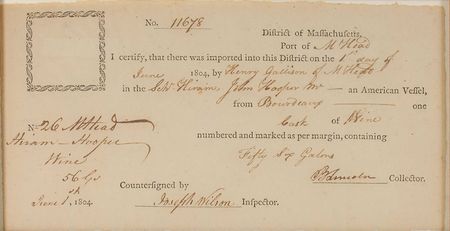 No. 11678
District of Massachusetts,
Port of M Head
I certify, that there was imported into this District on the 1st day of
June 1804, by Henry Gallison of M Head
in the Schr Hiram, John Hooper Mr — an American Vessel,
from Bourdeaux one
Cask of Wine
numbered and marked as per margin, containing
Fifty Six Galons
No 26 MHead
Hiram — Hooper
Wine
56 Gs
June 1st 1804
Collector.
Countersigned by Joseph Wilson Inspector.